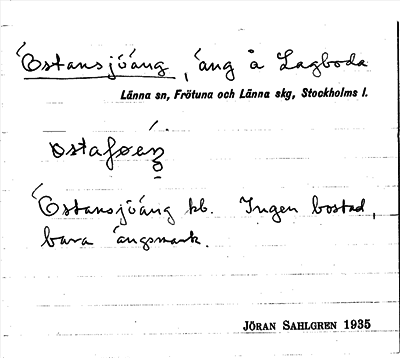 Östansjöäng, äng å Lagboda
Länna sn, Frötuna och Länna skg, Stockholms l.
Östansjöäng kb. Ingen bostad,
bara ängsmark.
JÖRAN SAHLGREN 1935